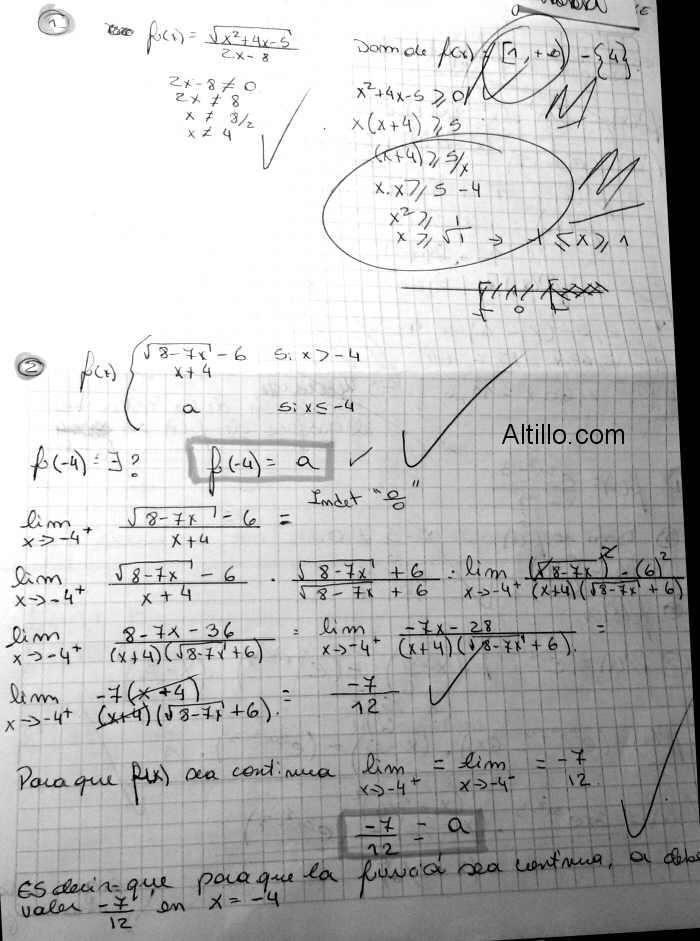 1
f(x) = √(x²+4x-5) / (2x-8)
Dom de f(x) = [1, +∞) - {4}
2x-8 ≠ 0
2x ≠ 8
x ≠ 8/2
x ≠ 4
x²+4x-5 ≥ 0
M
x(x+4) ≥ 5
(x+4) ≥ 5/x
x.x ≥ 5-4
x² ≥ 1
x ≥ √1 → -1 ≤ x ≥ 1
M
0
2
f(x) { (√(8-7x) - 6) / (x+4) si x > -4
a si x ≤ -4
Altillo.com
f(-4) = ∃? f(-4) = a
Indet "0/0"
lim x→-4⁺ (√(8-7x) - 6) / (x+4) =
lim x→-4⁺ (√(8-7x) - 6) / (x+4) · (√(8-7x) + 6) / (√(8-7x) + 6) = lim x→-4⁺ ((√(8-7x))² - (6)²) / ((x+4)(√(8-7x) + 6))
lim x→-4⁺ (8-7x-36) / ((x+4)(√(8-7x)+6)) = lim x→-4⁺ (-7x-28) / ((x+4)(√(8-7x)+6)) =
lim x→-4⁺ -7(x+4) / ((x+4)(√(8-7x)+6)) = -7/12
Para que f(x) sea continua lim x→-4⁺ = lim x→-4⁻ = -7/12
-7/12 = a
ES decir que para que la función sea continua, a debe
valer -7/12 en x = -4